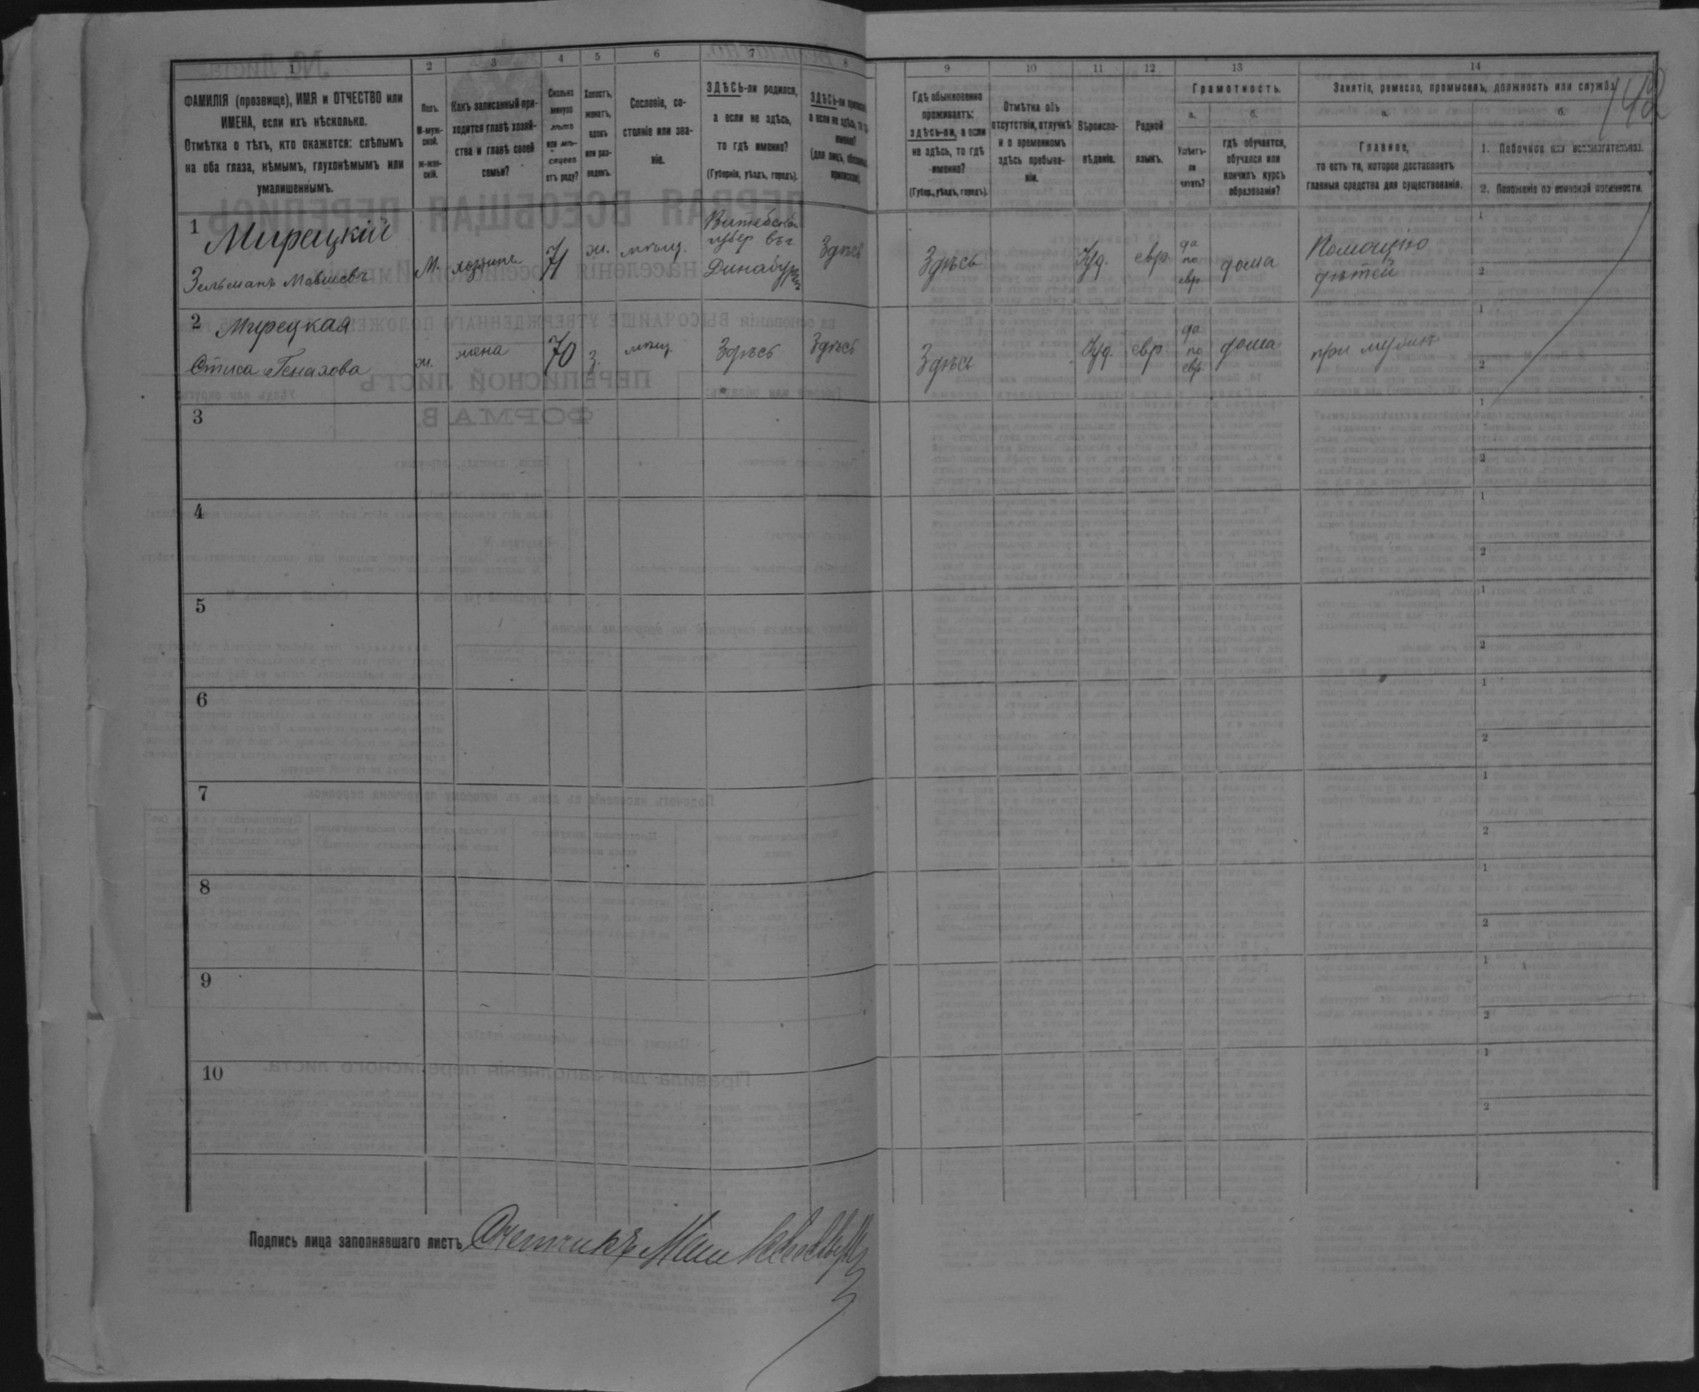 142
1 2 3 4 5 6 7 8 9 10 11 12 13 14
ФАМИЛІЯ (прозвище), ИМЯ и ОТЧЕСТВО или
ИМЕНА, если ихъ нѣсколько.
Отмѣтка о тѣхъ, кто окажется: слѣпымъ
на оба глаза, нѣмымъ, глухонѣмымъ или
умалишеннымъ.
Полъ.
М-муж-
ской.
ж-жен-
скій.
Какъ записанный при-
ходится главѣ хозяй-
ства и главѣ своей
семьи?
Сколько
минуло
лѣтъ
или мѣ-
сяцевъ
отъ роду?
Холостъ,
женатъ,
вдовъ
или раз-
веденъ.
Сословіе, со-
стояніе или зва-
ніе.
ЗДѢСЬ-ли родился,
а если не здѣсь,
то гдѣ именно?
(Губернія, уѣздъ, городъ).
ЗДѢСЬ-ли
а если не здѣсь, то гдѣ
именно?
Гдѣ обыкновенно
проживаетъ:
здѣсь-ли, а если
не здѣсь, то гдѣ
именно?
(Губер., уѣздъ, городъ).
Отмѣтка объ
отсутствіи, отлучкѣ
и о временномъ
здѣсь пребыва-
ніи.
Вѣроиспо-
вѣданіе.
Родной
языкъ.
Грамотность.
а.
Умѣетъ-
ли
читать?
б.
гдѣ обучается,
обучался или
кончилъ курсъ
образованія?
Занятіе, ремесло, промыселъ, должность или служба
а.
Главное,
то есть то, которое доставляетъ
главныя средства для существованія.
б.
1. Побочное или вспомогательное.
2. Положеніе по воинской повинности.
1 Мирецкій
Зельманъ Мовшевъ
М. хозяинъ 71 ж. мѣщ.
Витебской
губер въ г
Динабургъ
Здѣсь Здѣсь Іуд. евр.
да
по
евр
дома
Помощію
дѣтей
1
2
2 Мирецкая
Генахова
ж. жена 70 з. мѣщ Здѣсь Здѣсь Здѣсь Іуд. евр
да
по
евр.
дома при мужѣ
1
2
3
1
2
4
1
2
5
1
2
6
1
2
7
1
2
8
1
2
9
1
2
10
1
2
Подпись лица заполнявшаго листъ Счетчикъ